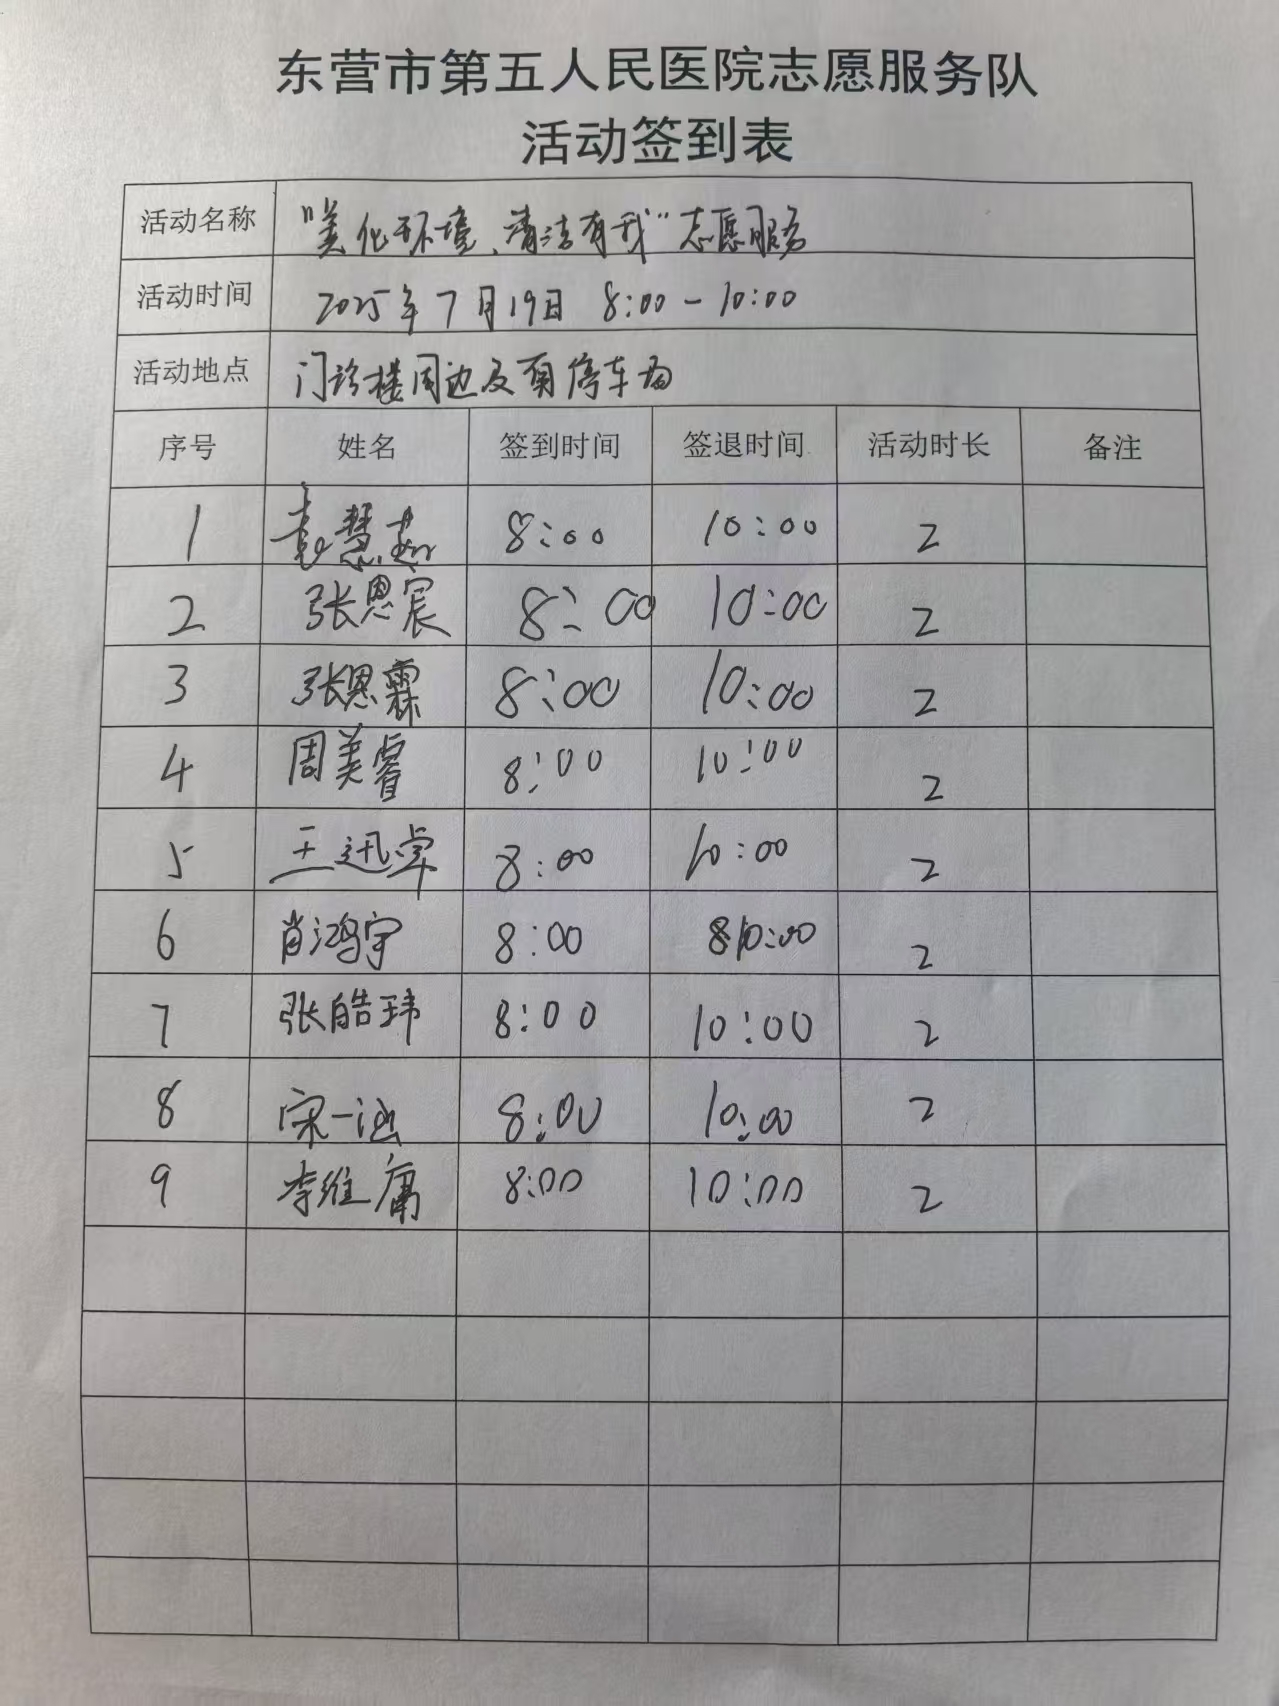 东营市第五人民医院志愿服务队
活动签到表
活动名称 "美化环境、清洁有我"志愿服务
活动时间 2025年7月19日 8:00-10:00
活动地点 门诊楼周边及 停车场
序号 姓名 签到时间 签退时间 活动时长 备注
1 8:00 10:00 2
2 张恩宸 8:00 10:00 2
3 张恩霖 8:00 10:00 2
4 周美睿 8:00 10:00 2
5 王迅卓 8:00 10:00 2
6 肖鸿宇 8:00 10:00 2
7 张皓玮 8:00 10:00 2
8 宋一涵 8:00 10:00 2
9 李维庸 8:00 10:00 2